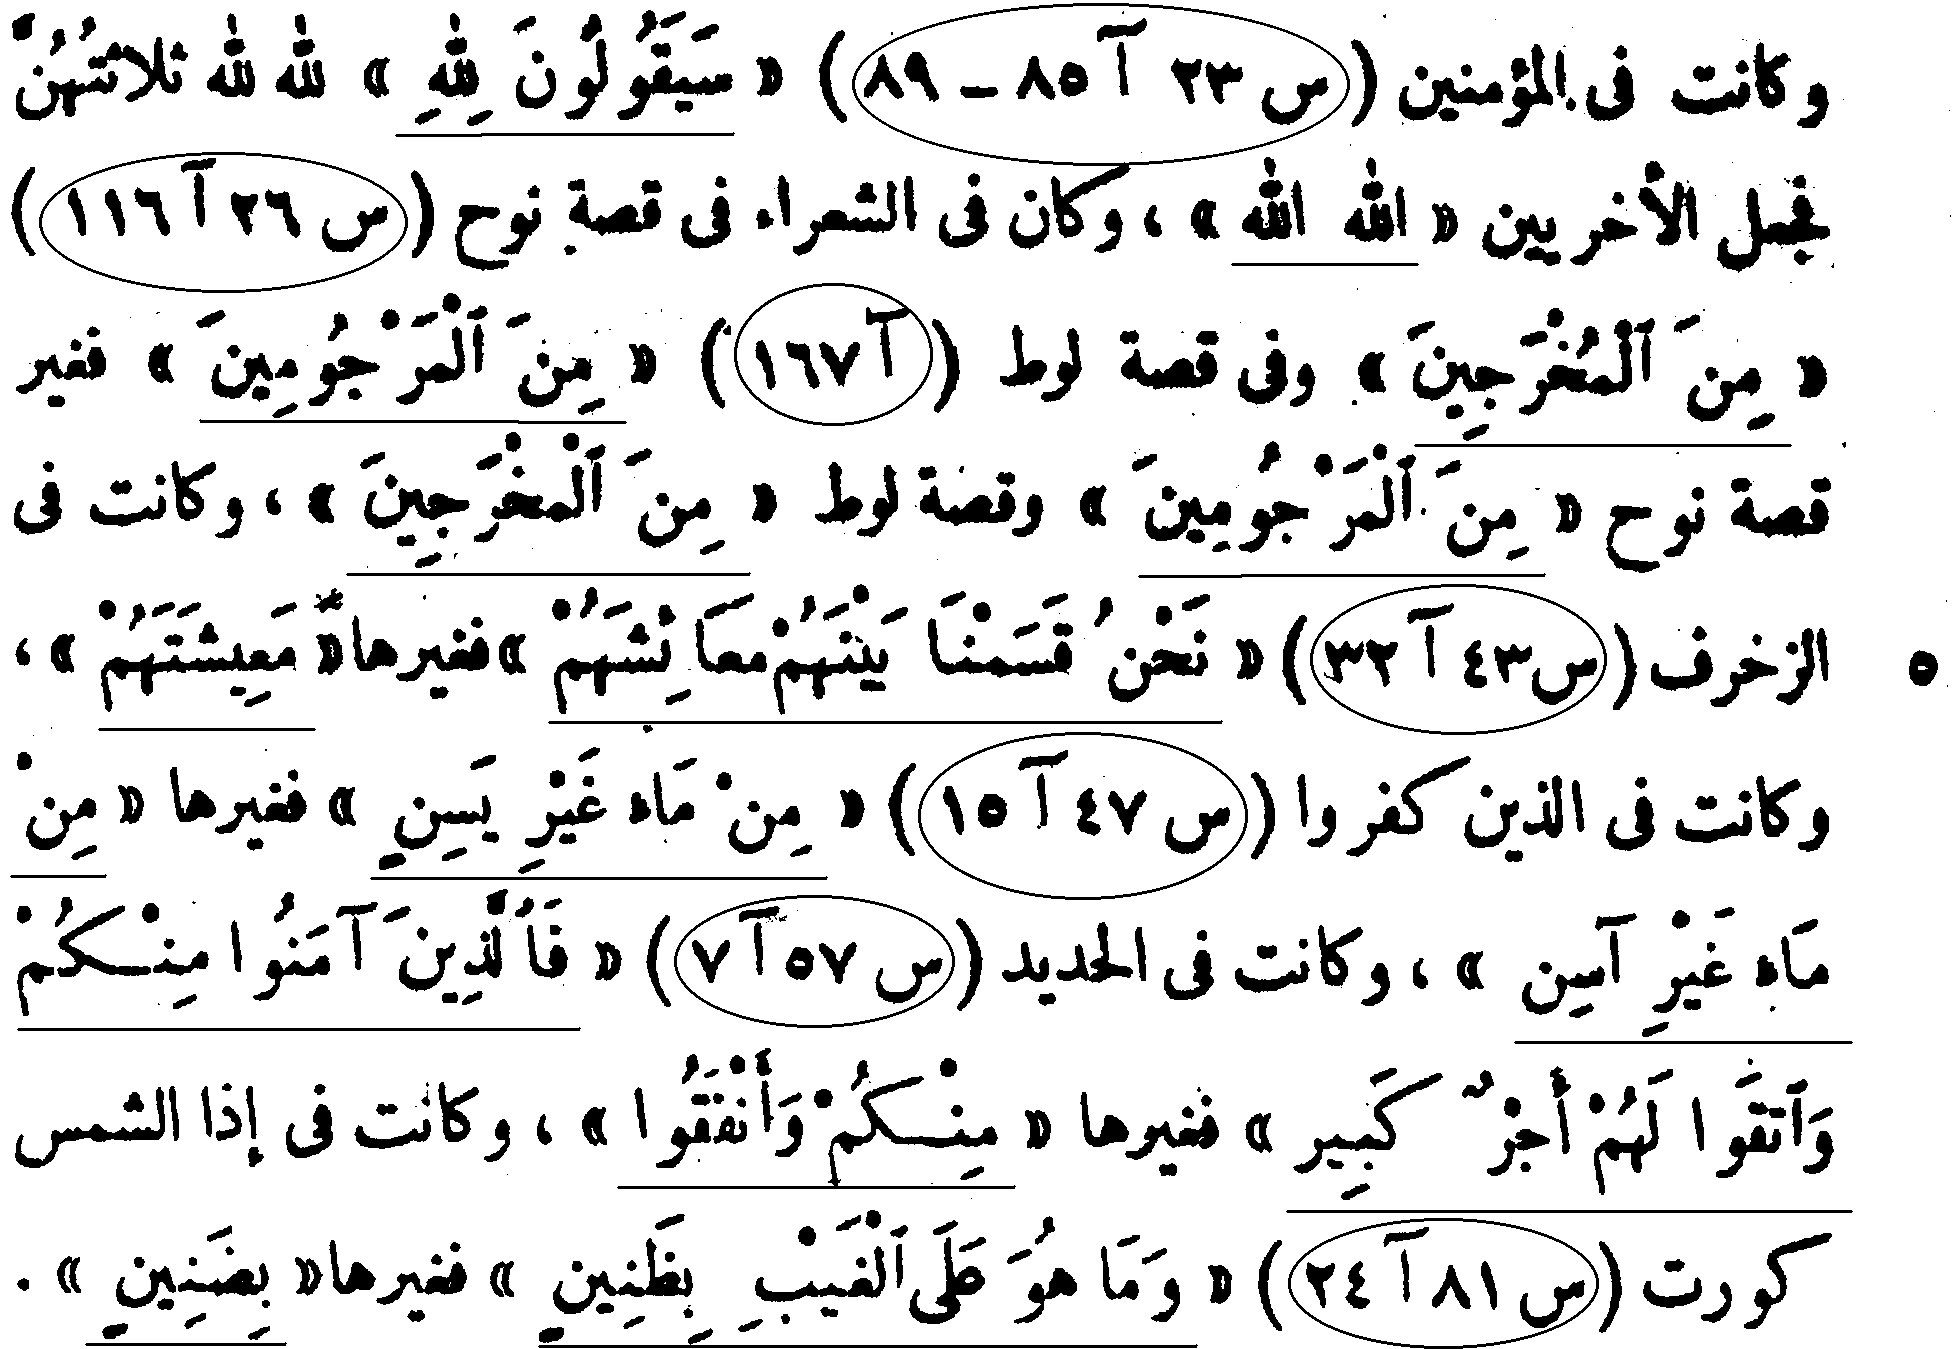 وكانت فى المؤمنين (س ٢٣ آ ٨٥ – ٨٩) « سَيَقُولُونَ لِلّٰهِ » لله لله ثلاثتُهُنَّ
فجعل الأخريين « الله الله » ، وكان فى الشعراء فى قصة نوح (س ٢٦ آ ١١٦)
« مِنَ ٱلْمُخْرَجِينَ » وفى قصة لوط (آ ١٦٧) « مِنَ ٱلْمَرْجُومِينَ » فغير
قصة نوح « مِنَ ٱلْمَرْجُومِينَ » وقصة لوط « مِنَ ٱلْمخْرَجِينَ » ، وكانت فى
الزخرف (س ٤٣ آ ٣٢) « نَحْنُ قَسَمْنَا بَيْنَهُمْ مَعَائِشَهُمْ » فغيرها « مَعِيشَتَهُمْ » ، ٥
وكانت فى الذين كفروا (س ٤٧ آ ١٥) « مِنْ مَاء غَيْرِ يَسِنٍ » فغيرها « مِنْ
مَاء غَيْرِ آسِن » ، وكانت فى الحديد (س ٥٧ آ ٧) « فَٱلَّذِينَ آمَنُوا مِنْكُمْ
وَٱتَّقَوا لَهُمْ أَجْرٌ كَبِير » فغيرها « مِنْكُمْ وَأَنْفَقُوا » ، وكانت فى إذا الشمس
كورت (س ٨١ آ ٢٤) « وَمَا هُوَ عَلَى ٱلْغَيْبِ بِظَنِينٍ » فغيرها « بِضَنِينٍ » .